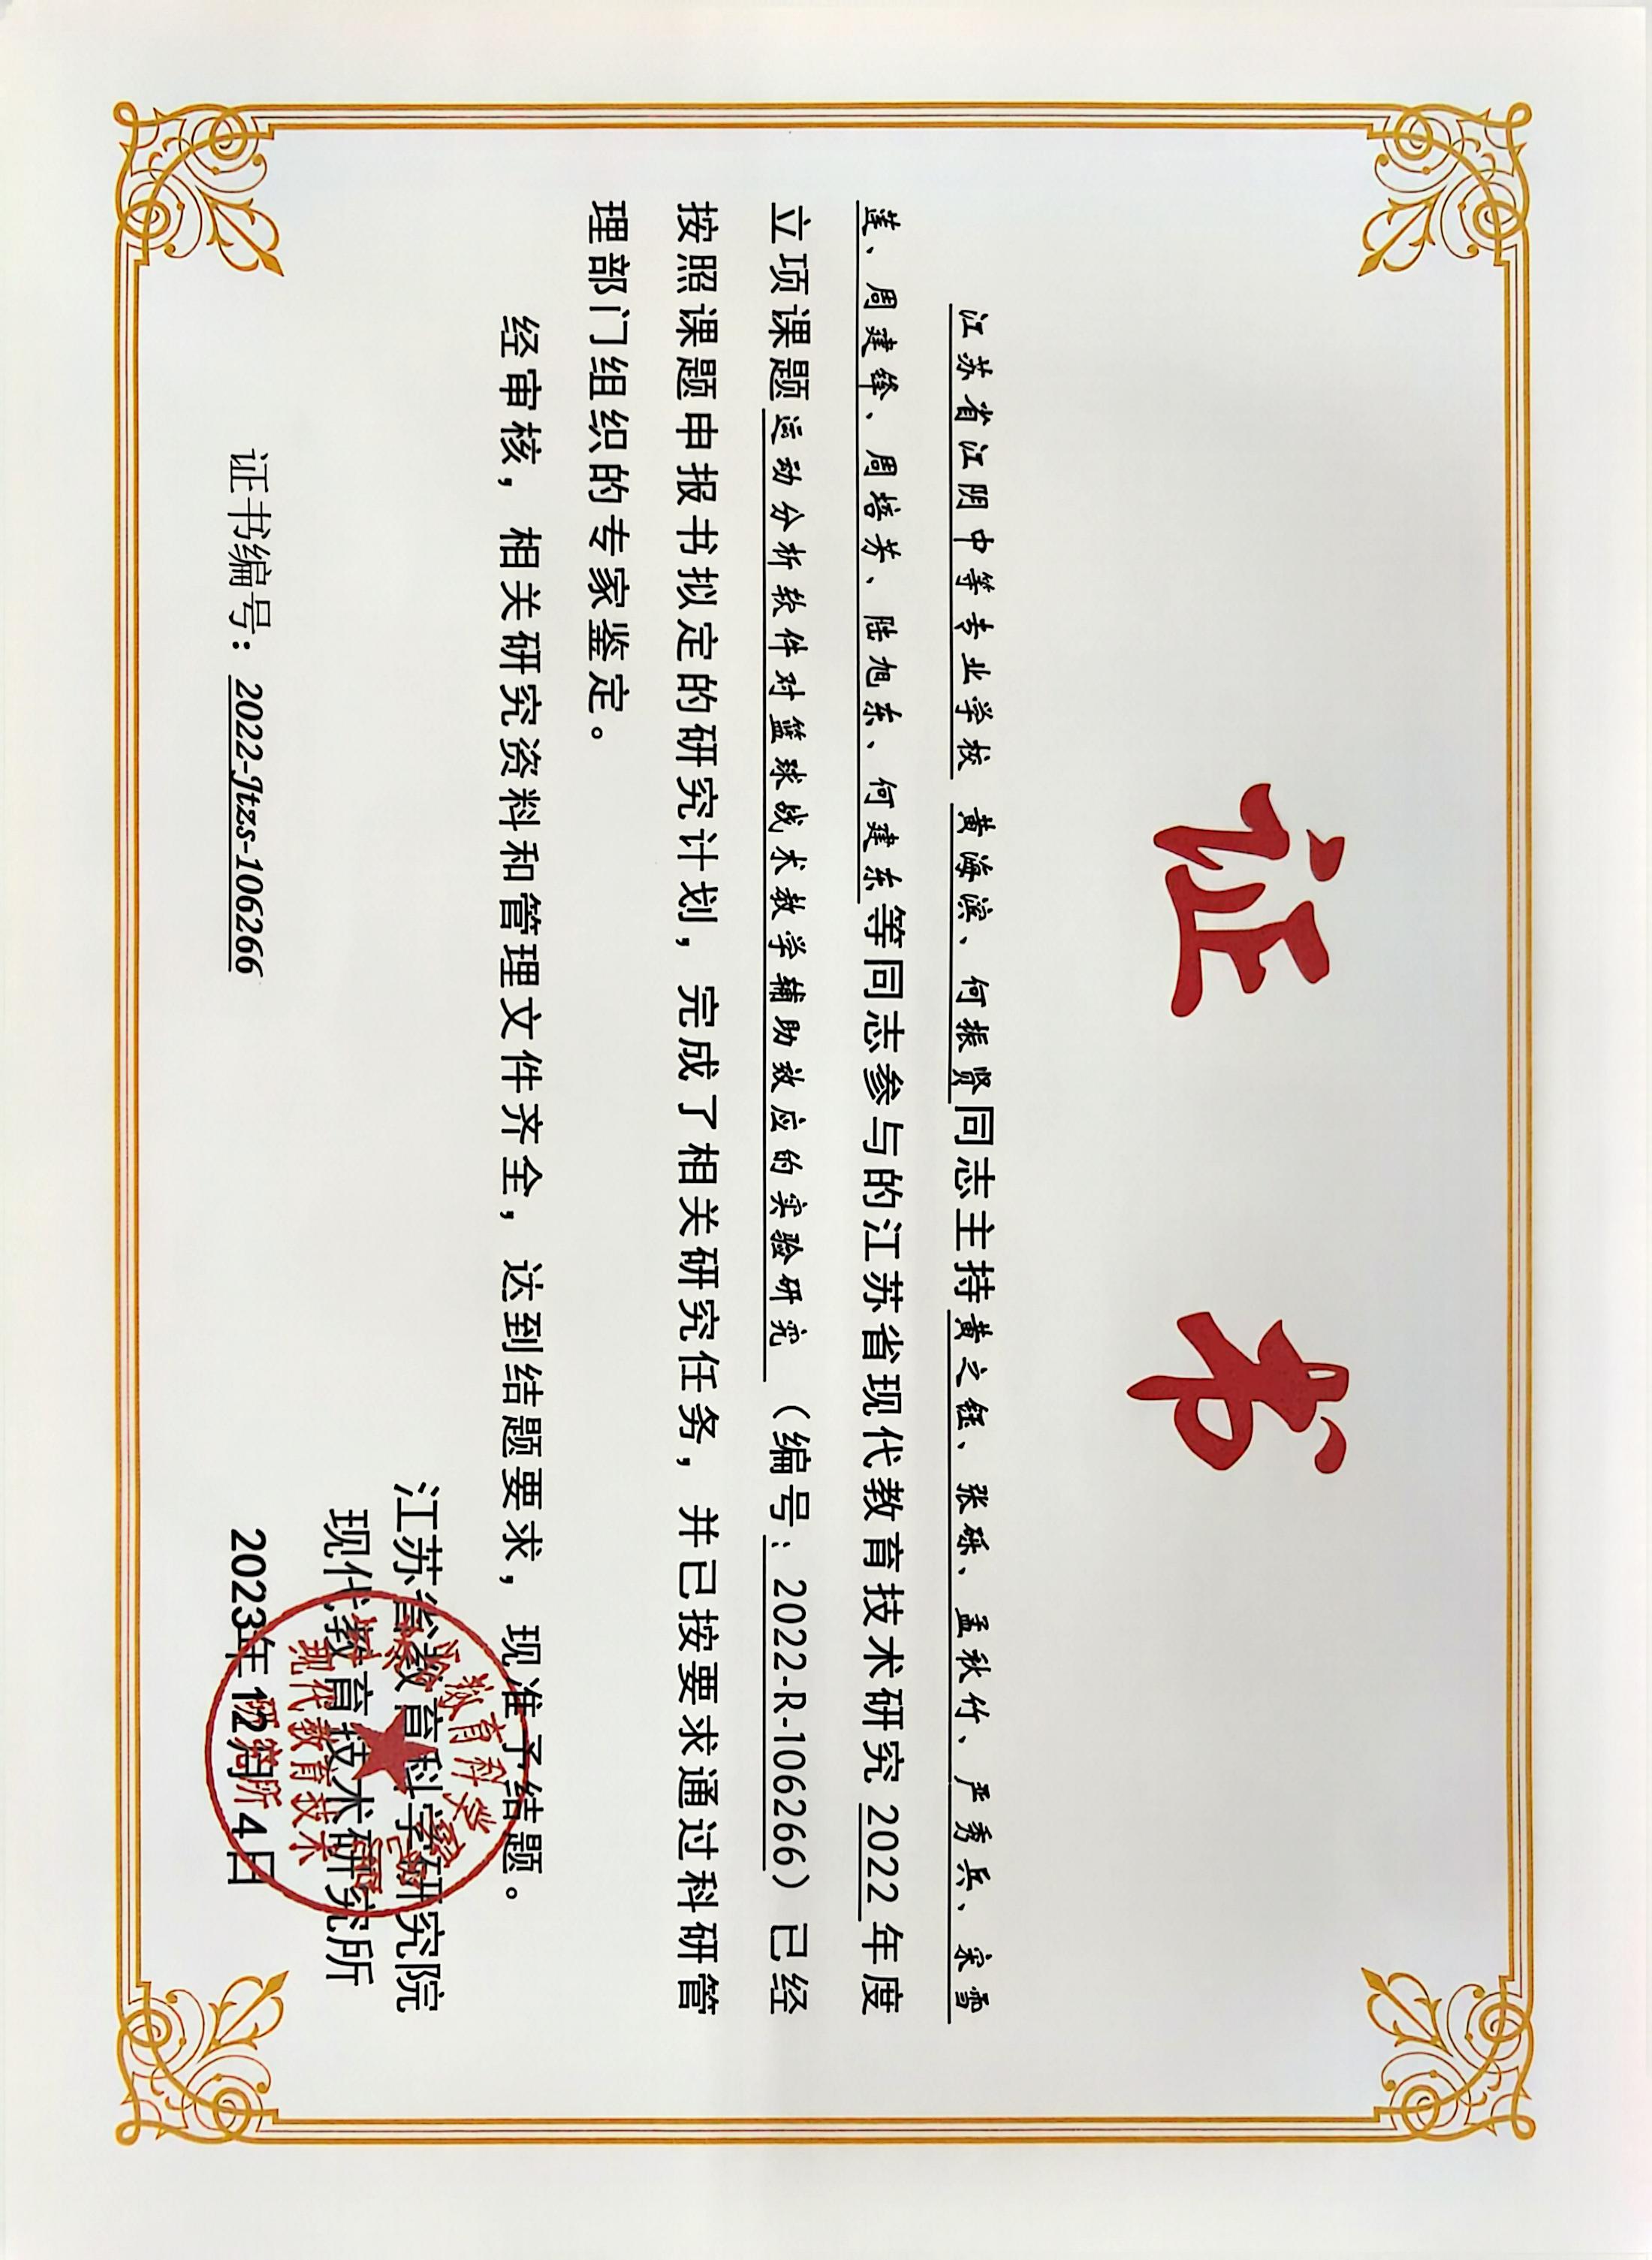 证书
江苏省江阴中等专业学校 黄海滨、何振贤同志主持黄之钰、张砾、孟秋竹、严秀兵、宋雪
莲、周建锋、周培芳、陆旭东、何建东等同志参与的江苏省现代教育技术研究 2022 年度
立项课题运动分析软件对篮球战术教学辅助效应的实验研究（编号：2022-R-106266）已经
按照课题申报书拟定的研究计划，完成了相关研究任务，并已按要求通过科研管
理部门组织的专家鉴定。
经审核，相关研究资料和管理文件齐全，达到结题要求，现准予结题。
江苏省教育科学研究院
现代教育技术研究所
证书编号：2022-Jtzs-106266
2023年12月4日
江苏省教育科学研究院
现代教育技术
研究所